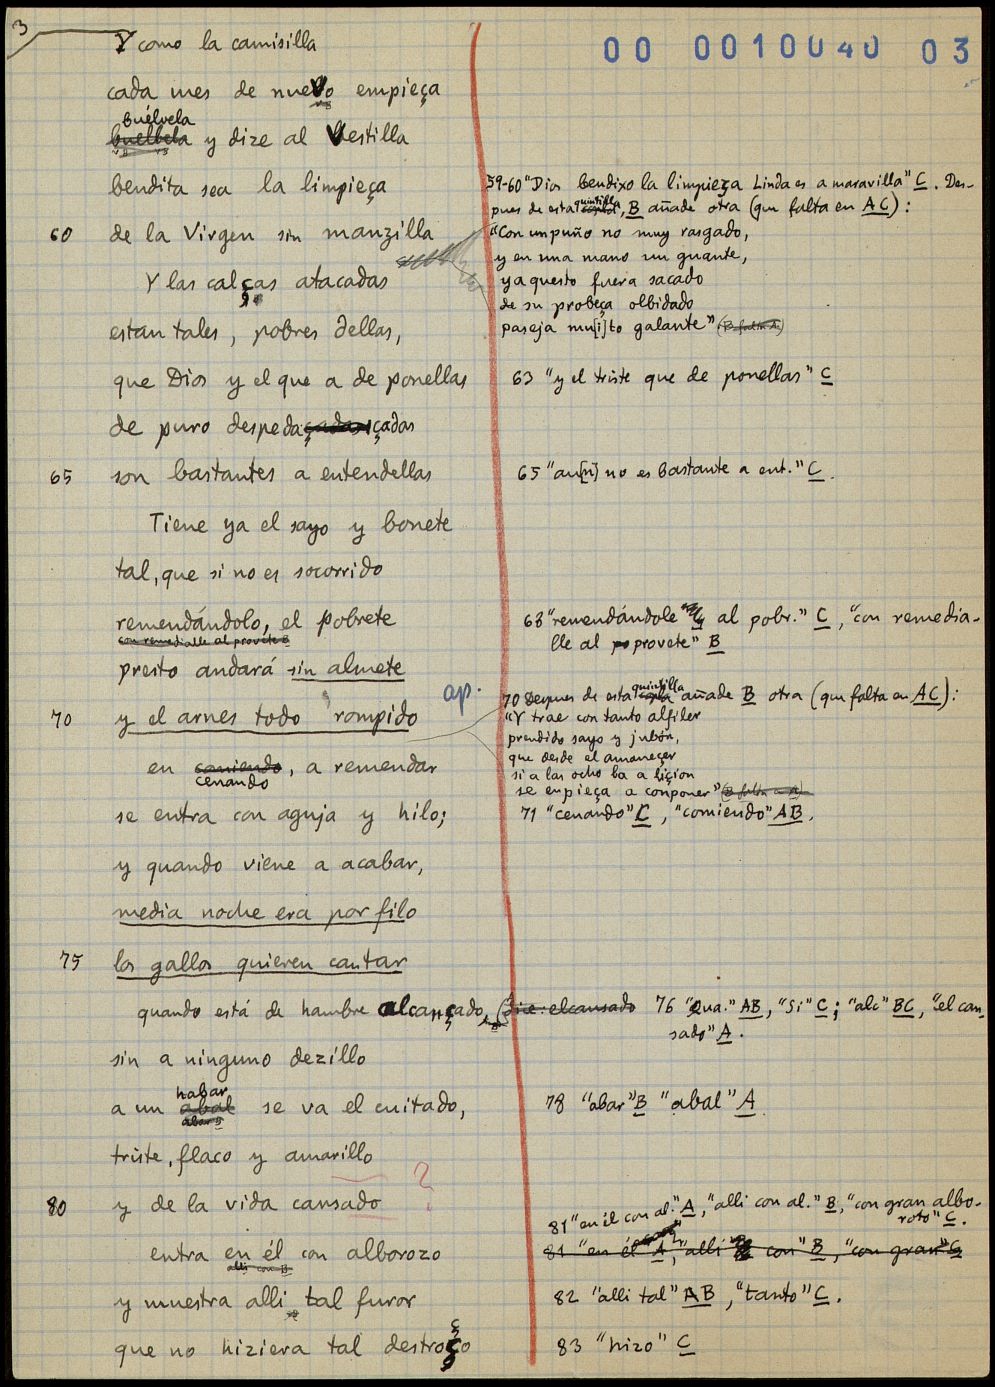 3
00 0010040 03
Y como la camisilla
cada mes de nuevo empieça
buélvela
buelbela y dize al Vestilla
bendita sea la limpieça
60 de la Virgen sin manzilla
Y las calças atacadas
estan tales, pobres dellas,
que Dios y el que a de ponellas
de puro despedaçadas çadas
65 son bastantes a entendellas
Tiene ya el sayo y bonete
tal, que si no es socorrido
remendándolo, el pobrete
con remedialle al provete B
presto andará sin almete
70 y el arnes todo rompido
en comiendo, a remendar
cenando
se entra con aguja y hilo;
y quando viene a acabar,
media noche era por filo
75 los gallos quieren cantar
quando está de hambre alcançado, (dice: elcansado
sin a ninguno dezillo
habar
a un abal se va el cuitado,
abar B
triste, flaco y amarillo
80 y de la vida cansado
?
entra en él con alborozo
alli con B
y muestra alli tal furor
que no hiziera tal destroço
ç
59-60 "Dios bendixo la limpieça Linda es a maravilla" C. Des-
pues de esta quintilla, B añade otra (que falta en AC):
"Con un puño no muy rasgado,
y en una mano un guante,
ya questo fuera sacado
de su probeça olbidado
paseja mu[i]to galante" (B falta A)
63 "y el triste que de ponellas" C
65 "au[n] no es bastante a ent." C.
68 "remendándole al pobr." C, "con remedia-
lle al provete" B
ap.
70 Despues de esta quintilla añade B otra (que falta en AC):
"Y trae con tanto alfiler
prendido sayo y jubón,
que desde el amaneçer
si a las ocho ba a liçion
se empieça a conponer" (B falta en A)
71 "cenando" C, "comiendo" AB.
76 "Qua." AB, "Si" C; "alc" BC, "el can-
sado" A.
78 "abar" B "abal" A
81 "en él con al." A, "alli con al." B, "con gran albo-
roto" C.
81 "en él" A, "alli con" B, "con gran" C
82 "alli tal" AB, "tanto" C.
83 "hizo" C